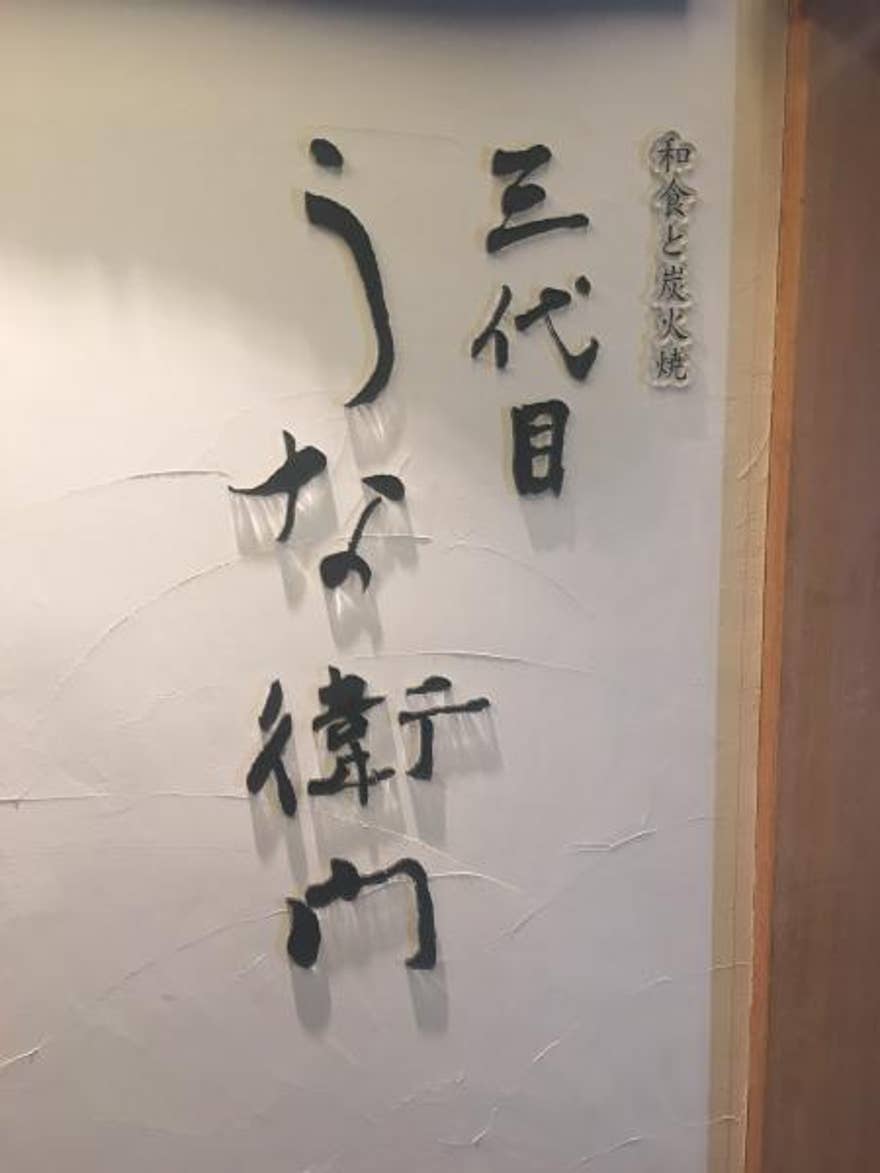 和食と炭火焼
三代目
うな衛門